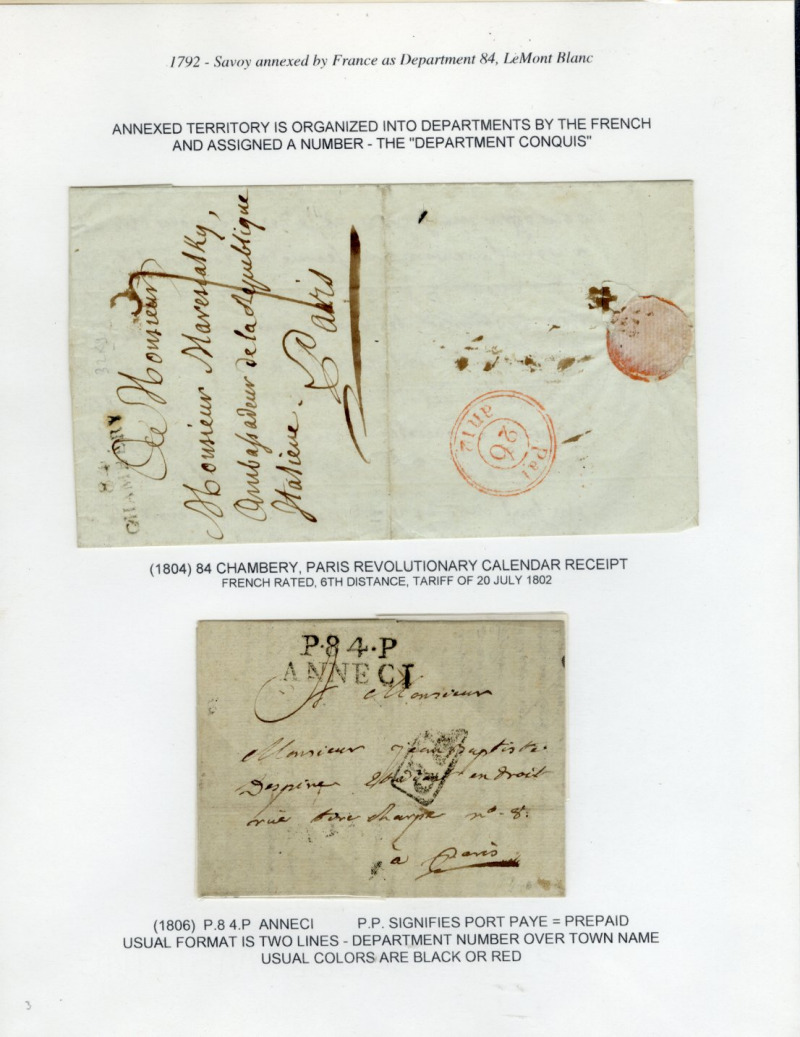 1792 - Savoy annexed by France as Department 84, LeMont Blanc
ANNEXED TERRITORY IS ORGANIZED INTO DEPARTMENTS BY THE FRENCH
AND ASSIGNED A NUMBER - THE "DEPARTMENT CONQUIS"
84
CHAMBERY
Monsieur
Monsieur Marescalchy,
Ambassadeur de la Republique
Italiene.
Paris
Par
26
an 12
(1804) 84 CHAMBERY, PARIS REVOLUTIONARY CALENDAR RECEIPT
FRENCH RATED, 6TH DISTANCE, TARIFF OF 20 JULY 1802
P.84.P
ANNECI
A Monsieur
Monsieur jean Baptiste
Despine en droit
rue harpe n°. 8.
à Paris
(1806) P.8 4.P ANNECI P.P. SIGNIFIES PORT PAYE = PREPAID
USUAL FORMAT IS TWO LINES - DEPARTMENT NUMBER OVER TOWN NAME
USUAL COLORS ARE BLACK OR RED
3